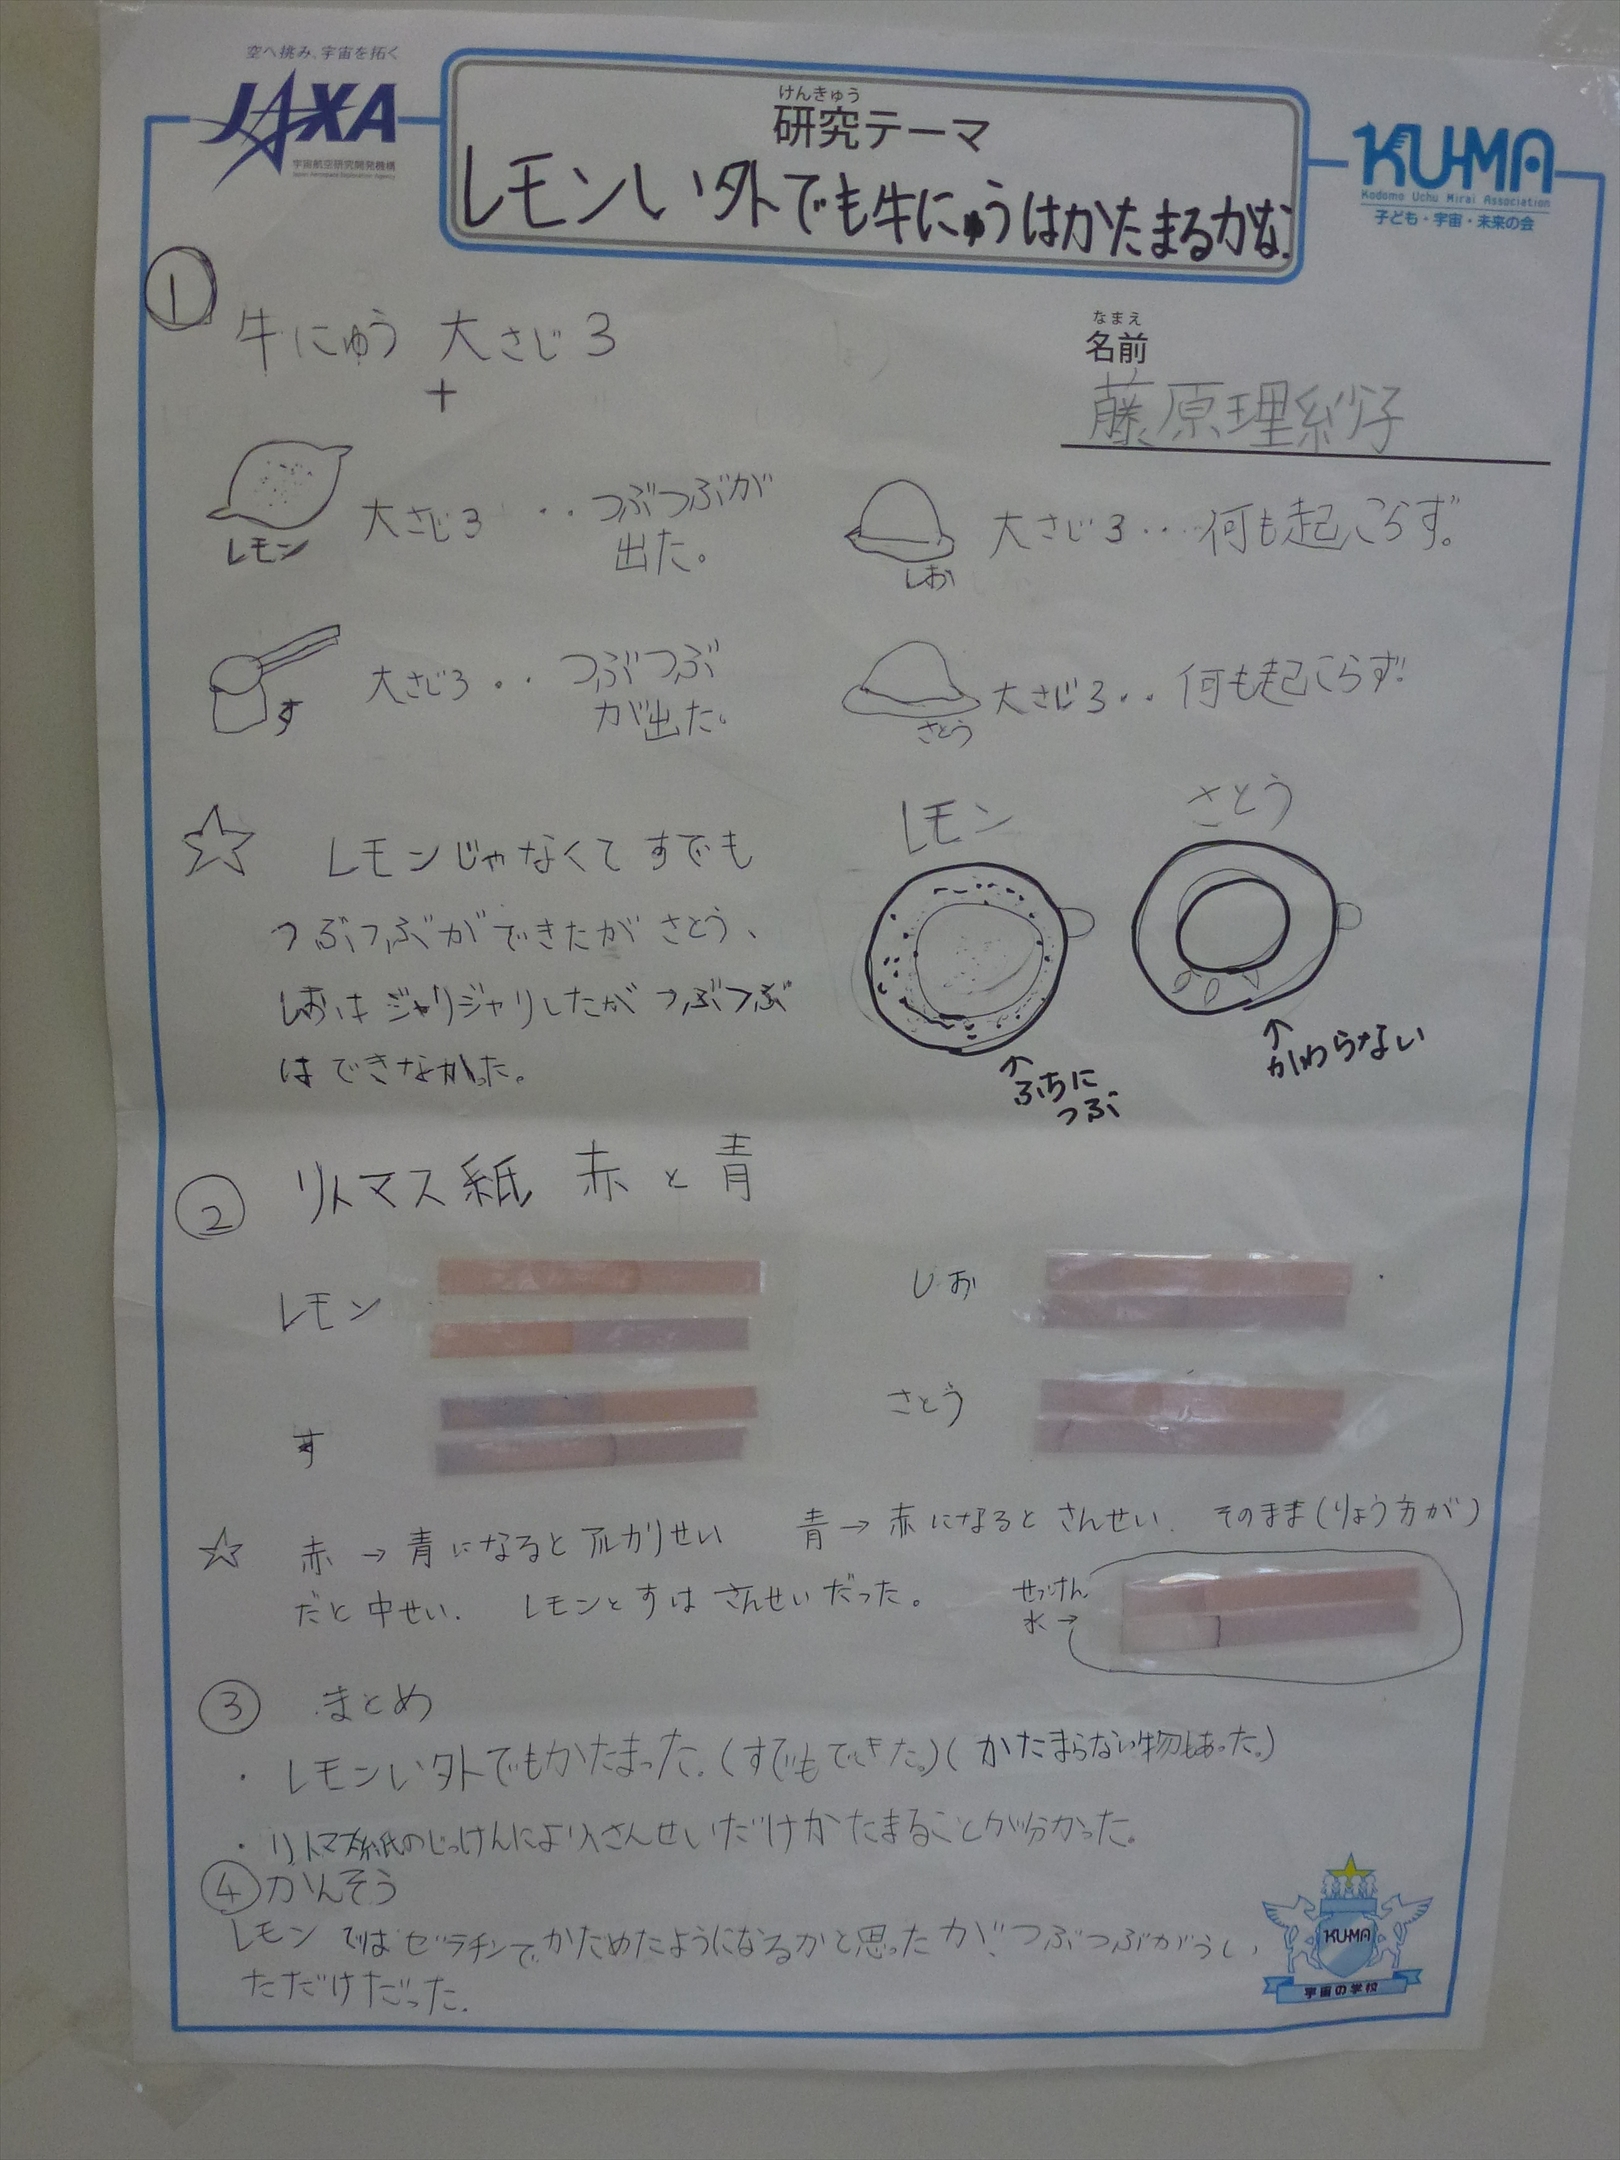 空へ挑み、宇宙を拓く
JAXA
宇宙航空研究開発機構
Japan Aerospace Exploration Agency
けんきゅう
研究テーマ
レモンい外でも牛にゅうはかたまるかな.
KU-MA
Kodomo Uchu Mirai Association
子ども・宇宙・未来の会
① 牛にゅう 大さじ3
+
なまえ
名前
藤原理紗子
レモン 大さじ3 ‥つぶつぶが
出た。
しお 大さじ3‥・何も起こらず。
す 大さじ3‥つぶつぶ
が出た。
さとう 大さじ3‥何も起こらず
☆ レモンじゃなくてすでも
つぶつぶができたがさとう、
しおはジャリジャリしたがつぶつぶ
はできなかった。
レモン
↑ふちに
つぶ
さとう
↑かわらない
② リトマス紙 赤と青
レモン
しお
す
さとう
☆ 赤→青になるとアルカリせい 青→赤になるとさんせい. そのまま(りょう方が)
だと中せい. レモンとすはさんせいだった。
せっけん
水→
③ まとめ
・レモンい外でもかたまった.(すでもできた。)(かたまらない物もあった。)
・リトマス紙のじっけんによりさんせいだけかたまることが分かった。
④かんそう
レモンではゼラチンでかためたようになるかと思ったが、つぶつぶがうい
ただけだった.
KU-MA
宇宙の学校